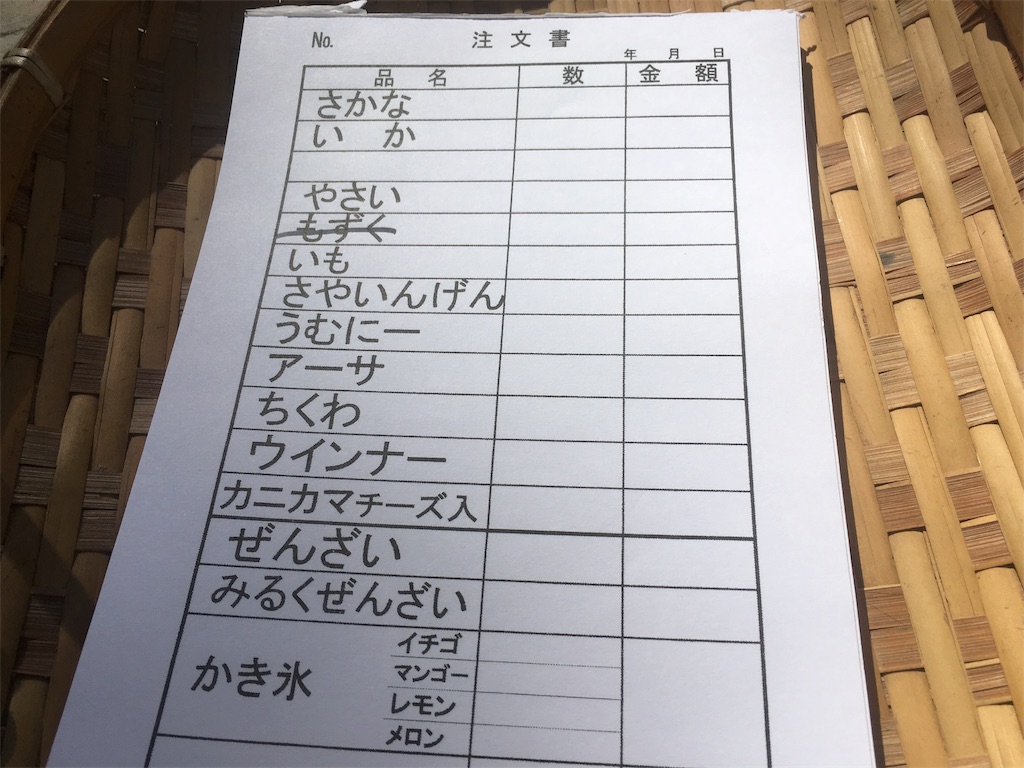 No. 注文書
年 月 日
品名 数 金額
さかな
いか
やさい
もずく
いも
さやいんげん
うむにー
アーサ
ちくわ
ウインナー
カニカマチーズ入
ぜんざい
みるくぜんざい
かき氷 イチゴ
マンゴー
レモン
メロン